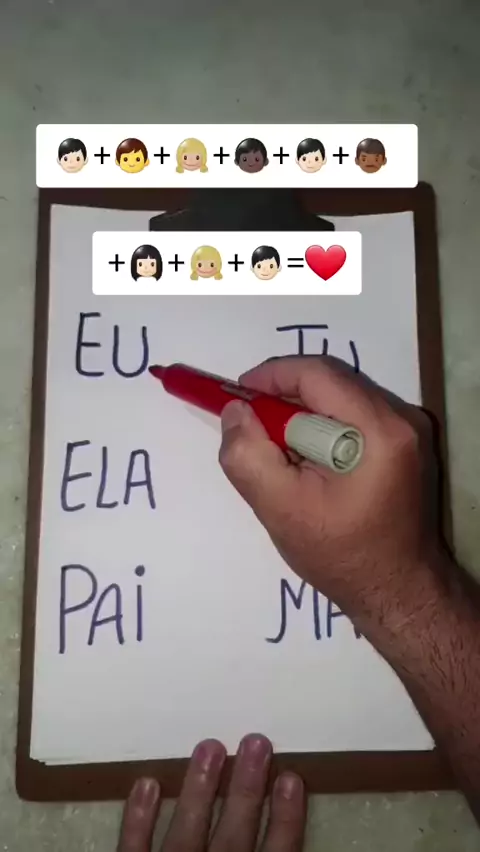 👦🏻+👦+👧🏼+👦🏿+👦🏻+👨🏾
+👧🏻+👧🏼+👦🏻=❤️
EU TU
ELA
PAI